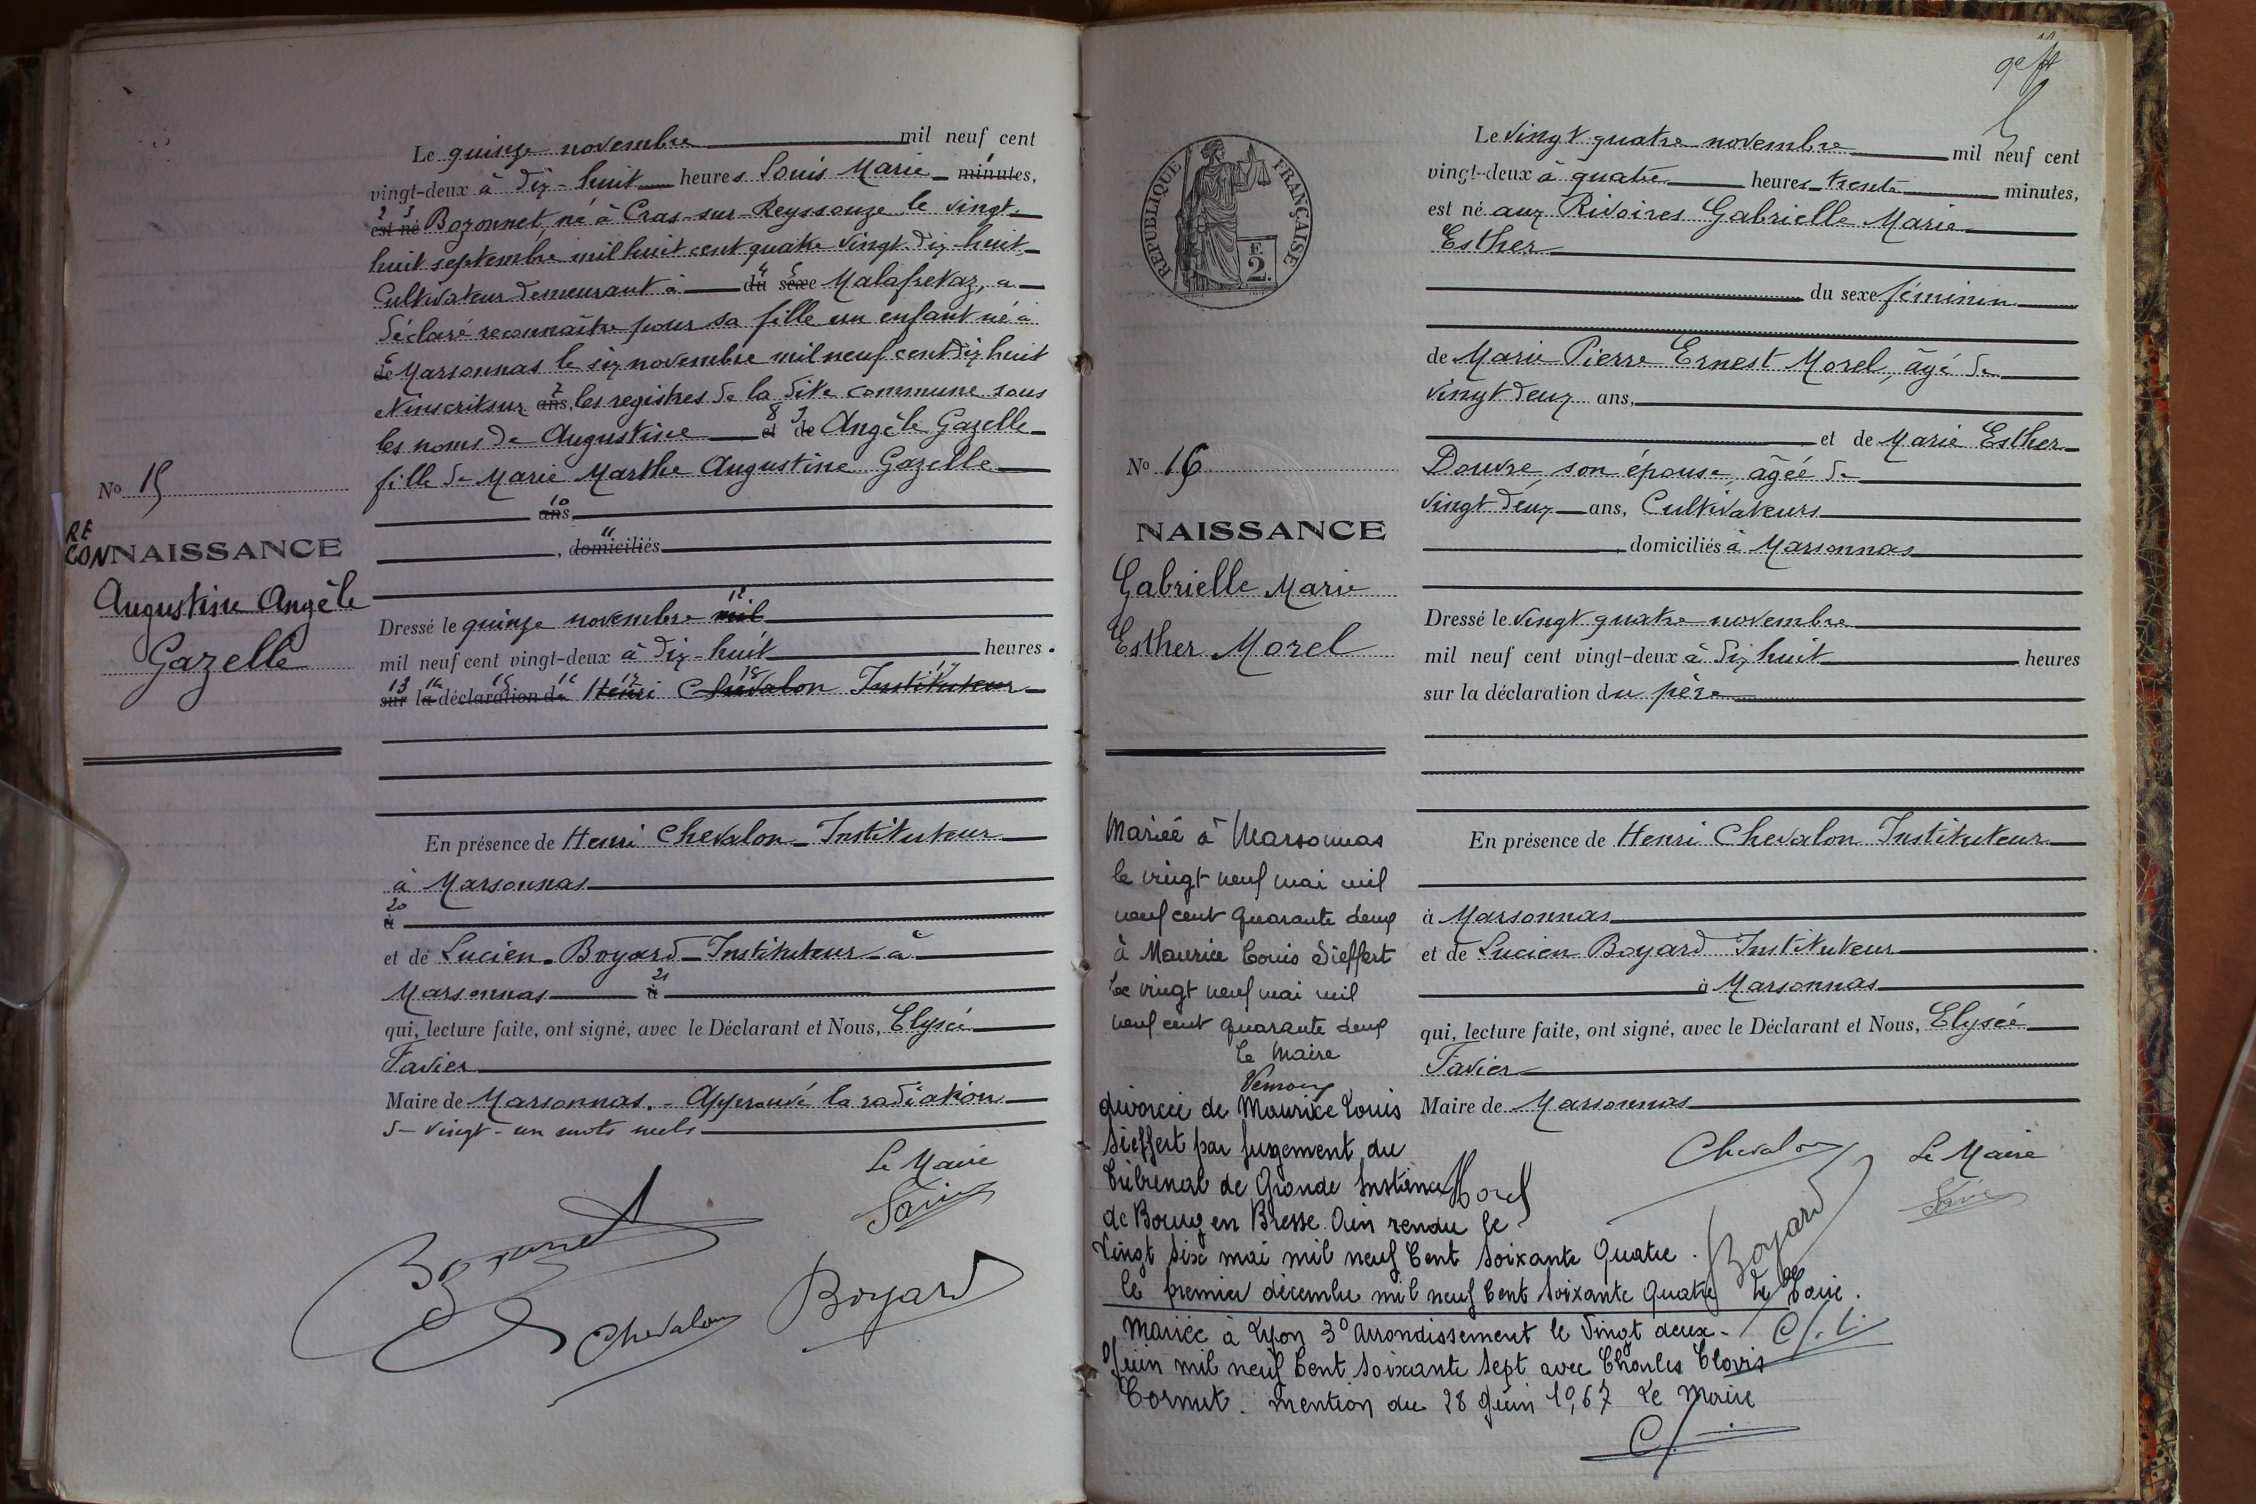 Le quinze novembre mil neuf cent
vingt-deux à dix-huit heures Louis Marie minutes,
est né Bozonnet né à Cras-sur-Reyssouze le vingt
huit septembre mil huit cent quatre vingt dix huit,
Cultivateur demeurant à du sexe Malafretaz, a
déclaré reconnaître pour sa fille un enfant né à
de Marsonnas le six novembre mil neuf cent dix huit
et inscrit sur ans, les registres de la dite commune sous
les noms de Augustine et de Angèle Gazelle
fille de Marie Marthe Augustine Gazelle
ans,
, domiciliés
Dressé le quinze novembre mil
mil neuf cent vingt-deux à dix-huit heures.
sur la déclaration de Henri Chevalon Instituteur
En présence de Henri Chevalon Instituteur
à Marsonnas
à
et de Lucien Boyard Instituteur à
Marsonnas à
qui, lecture faite, ont signé, avec le Déclarant et Nous, Elysée
Favier
Maire de Marsonnas. - Approuvé la radiation
de vingt-un mots nuls
Le Maire
Favier
Bozonnet
Chevalon
Boyard
No 15
RE
CONNAISSANCE
Augustine Angèle
Gazelle
RÉPUBLIQUE FRANÇAISE
F.
2.
Le vingt quatre novembre mil neuf cent
vingt-deux à quatre heures trente minutes,
est né aux Rivoires Gabrielle Marie
Esther
du sexe féminin
de Marie Pierre Ernest Morel, âgé de
vingt deux ans,
et de Marie Esther
Douvre son épouse, âgée de
vingt deux ans, Cultivateurs
domiciliés à Marsonnas
Dressé le vingt quatre novembre
mil neuf cent vingt-deux à dix huit heures
sur la déclaration du père
En présence de Henri Chevalon Instituteur
à Marsonnas
et de Lucien Boyard Instituteur
à Marsonnas
qui, lecture faite, ont signé, avec le Déclarant et Nous, Elysée
Favier
Maire de Marsonnas
Chevalon
Le Maire
Favier
Morel
Boyard
No 16
NAISSANCE
Gabrielle Marie
Esther Morel
Mariée à Marsonnas
le vingt neuf mai mil
neuf cent quarante deux
à Maurice Louis Sieffert
Le vingt neuf mai mil
neuf cent quarante deux
Le Maire
divorcée de Maurice Louis
Sieffert par jugement du
Tribunal de Grande Instance
de Bourg en Bresse Ain rendu le
vingt six mai mil neuf Cent soixante Quatre.
le premier décembre mil neuf Cent soixante Quatre Le Maire.
Mariée à Lyon 3° Arrondissement le Vingt deux
Juin mil neuf Cent soixante sept avec Charles Clovis
Cornet. Mention du 28 Juin 1967 Le Maire